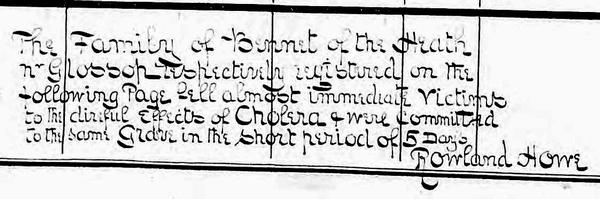 The Family of Bennet of the Heath
nr Glossop respectively registered on the
following Page fell almost immediate Victims
to the direful Effects of Cholera & were Committed
to the same Grave in the short period of 5 Days
Rowland Howe